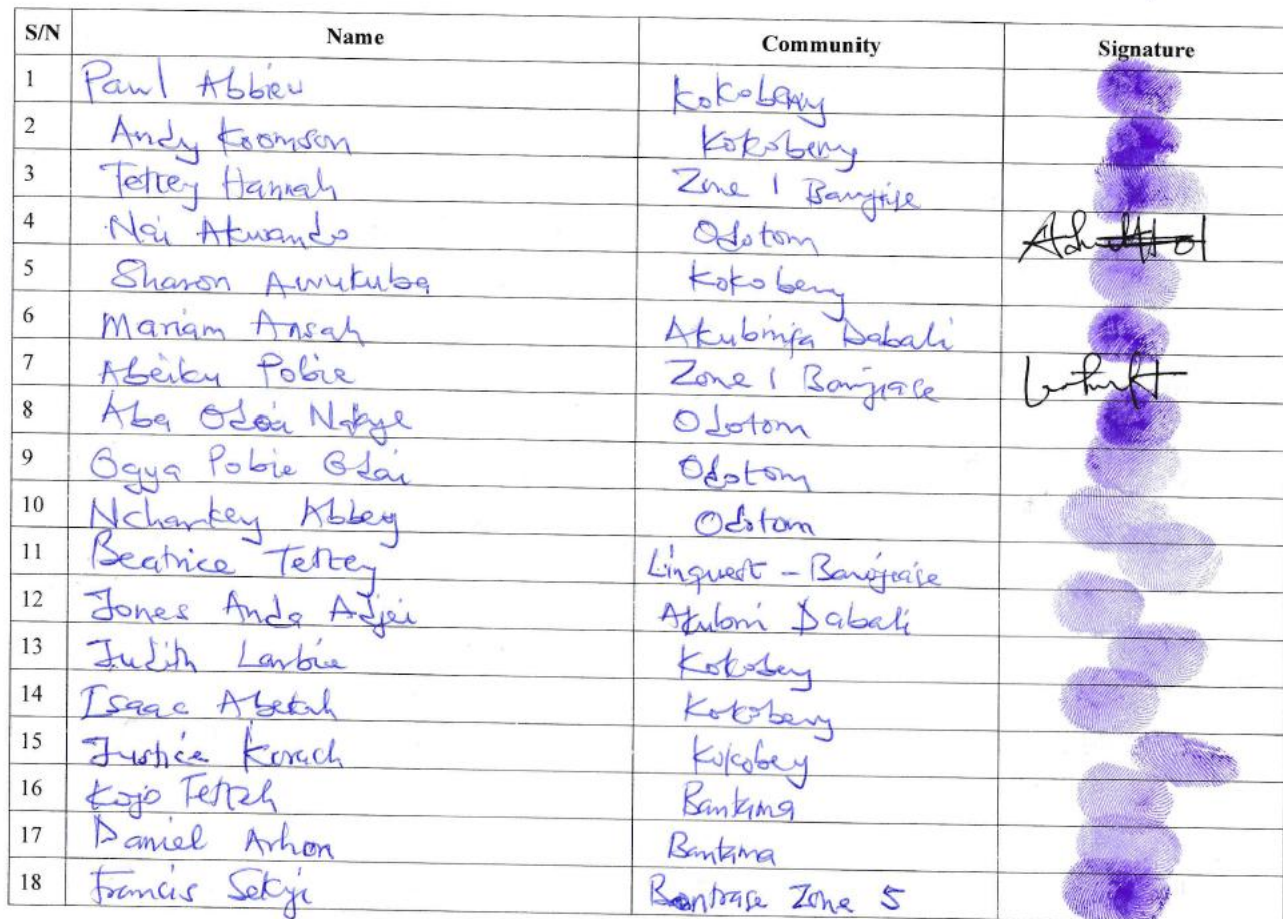 S/N Name Community Signature
1 Paul Abbiew Kokobeny
2 Andy Koomson Kokobeny
3 Tettey Hannah Zone 1
4 Nai Akwando Odotom
5 Sharon Awukuba Kokobeny
6 Mariam Ansah Akubinfa Dabali
7 Abeiku Pobie Zone 1
8 Aba Odoi Odotom
9 Ogya Pobie Odai Odotom
10 Nchankey Abbey Odotom
11 Beatrice Tettey Linquest -
12 Jones Anda Adjei Akubni Dabali
13 Judith Larbie Kokobey
14 Isaac Abekah Kokobeny
15 Justice Korach Kokobey
16 Kojo Tettah Bankama
17 Daniel Arhon Bankama
18 Francis Sekyi Bontrase Zone 5